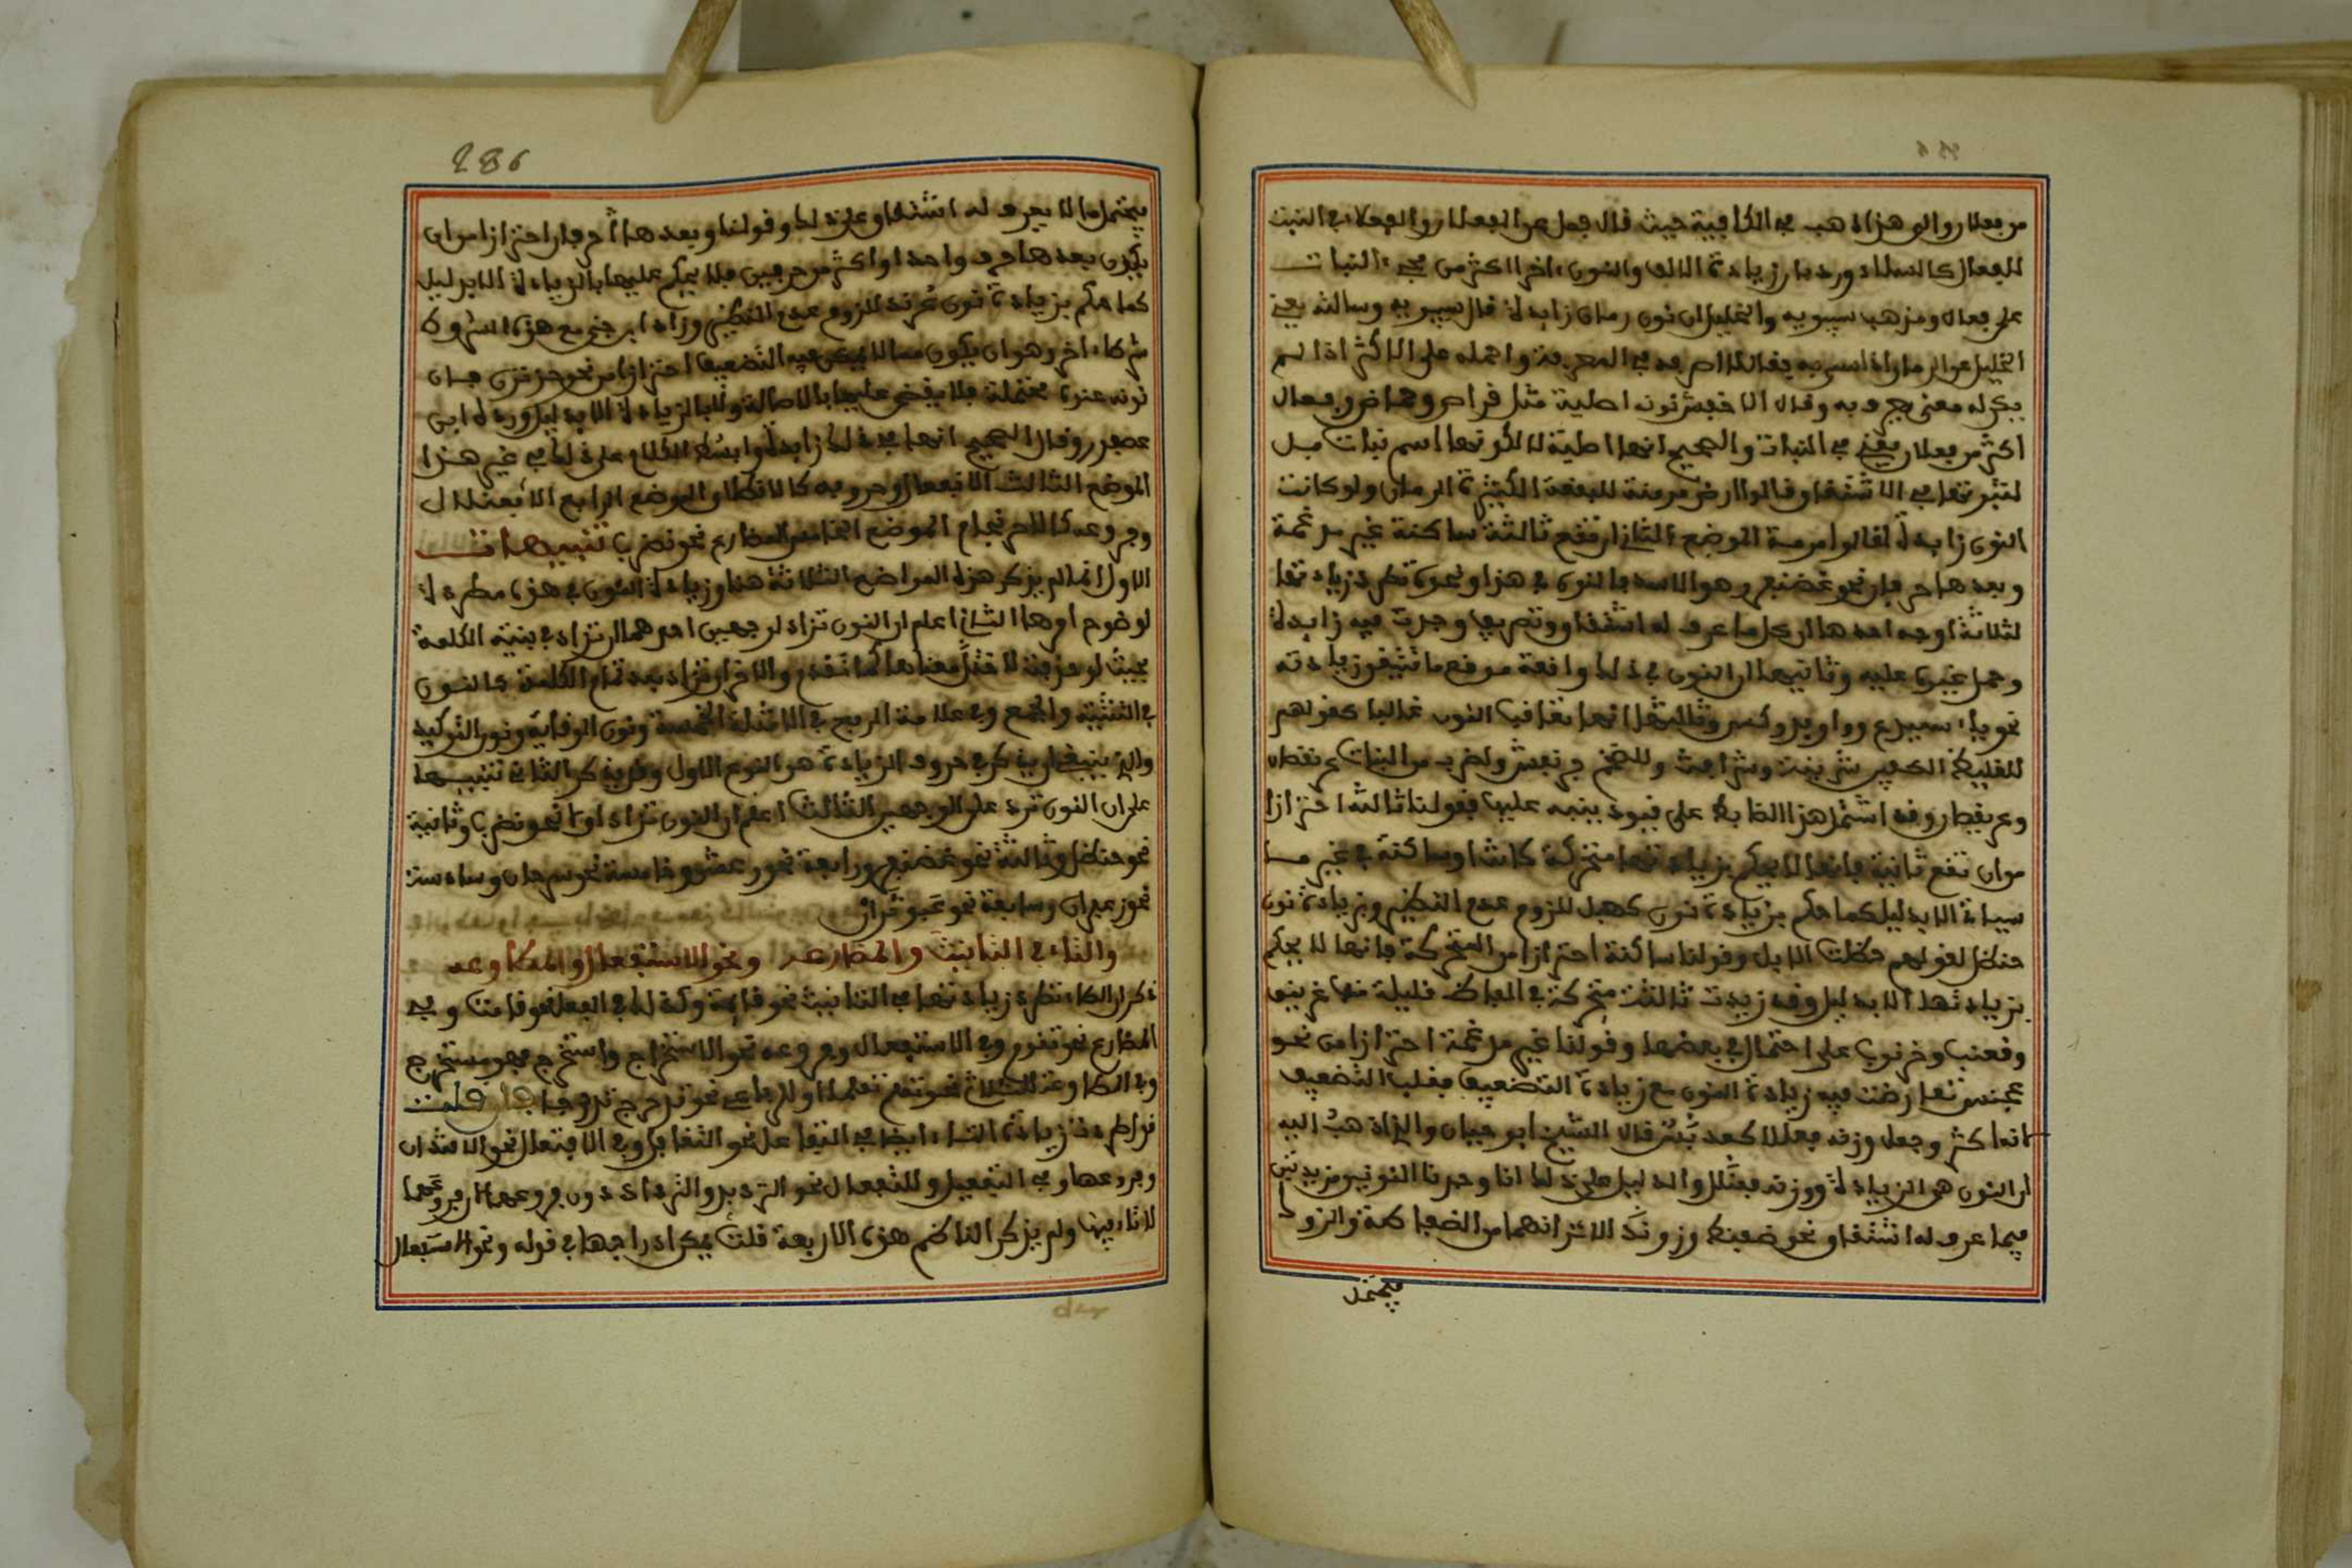 من فعلان والى هذا ذهب في الكافية حيث قال فمل عن الفعلان والفعلاء في النبت
للفعال كالسلاء ورد بان زيادة الالف والنون ءاخرا اكثر من مجيء النبات
على فعال ومذهب سيبويه والخليل ان نون رمان زايدة قال سيبويه وسالته يعني
الخليل عن الرمان اذا سمي به فقال لا اصرفه في المعرفة واحمله على الاكثر اذا لم
يكن له معنى يعرف به وقال الاخفش نونه اصلية مثل قراص وحماض وفعال
اكثر من فعلان يعني في النبات والصحيح انها اصلية لا لكونها اسم نبات بل
لثبوتها في الاشتقاق قالوا ارض مرمنة للبقعة الكثيرة الرمان ولو كانت
النون زايدة لقالوا مرمة الموضع الثاني ان تقع ثالثة ساكنة غير مدغمة
وبعدها حرفان نحو غضنفر وهو الاسد فالنون في هذا ونحوه تطرد زيادتها
لثلاثة اوجه احدها ان كل ما عرف له اشتقاق وتصريف وجدت فيه زايدة
وحمل غيره عليه وثانيها ان النون في ذلك واقعة موقع ما تيقن زيادته
نحو ياء سميدع وواو فدوكس وثالثها انها تعاقب النون غالبا كقولهم
للغليظ الكفين شرنبث وشرابث وللضخم جرنفش ولضرب من النبات عرنقصان
وعريقصان وقد اشتمل هذا الضابط على قيود ينبه عليها فقولنا ثالثة احترازا
من ان تقع ثانية فانها لا يحكم بزيادتها متحركة كانت او ساكنة في غير ما
سياتي الا بدليل كما حكم بزيادة نون كهبل للزوم عدم النظير وبزيادة نون
حنظل لقولهم حظلت الابل وقولنا ساكنة احترازا من المتحركة فانها لا يحكم
بزيادتها الا بدليل وقد زيدت ثالثة متحركة في الفاظ قليلة منها غرنيق
وقعنب وخرنوب على احتمال في بعضها وقولنا غير مدغمة احترازا من نحو
عجنس تعارضت فيه زيادة النون مع زيادة التضعيف فغلب التضعيف
لانها اكثر وجعل وزنه فعللا كعدبس قال الشيخ ابو حيان والذي اذهب اليه
ان النون هي الزيادة ووزنه فعنلل والدليل على ذلك انا وجدنا النونين مزيدتين
فيما عرف له اشتقاق نحو ضفنط وزونك الا ترى انهما من الضفاطة والزوك
يحتمل
286
يحتمل ما لا يعرف له اشتقاق على ذلك وقولنا وبعدها حرفان احترازا من ان
يكون بعدها حرف واحد او اكثر من حرفين فلا يحكم عليها بالزيادة الا بدليل
كما حكم بزيادة نون عرند للزوم عدم النظير وزاد ابن جني مع هذه الشروط
شرطا ءاخر وهو ان يكون مما لا يمكن فيه التضعيف احترازا من نحو حزنزن فان
نونه عنده محتملة فلا يقضى عليها بالاصالة ولا بالزيادة الا بدليل ورده ابن
عصفور وقال الصحيح انها في ذلك زايدة وابسط الكلام على ذلك في غير هذا
الموضع الثالث الانفعال وفروعه كالانطلاق الموضع الرابع الافعنلال
وفروعه كالاحرنجام الموضع الخامس المضارع نحو نضرب تنبيهات
الاول انما لم يذكر هذه المواضع الثلاثة هنا وزيادة النون في هذه مطردة
لوضوح امرها الثاني اعلم ان النون تزاد لوجهين احدهما ان تزاد في بنية الكلمة
بحيث لو حذفت لاختل معناها كما تقدم والاخر ان تزاد بعد تمام الكلمة كالنون
في التثنية والجمع وفي علامة الرفع في الامثلة الخمسة ونون الوقاية ونون التوكيد
والذي ينبغي ان يذكر في حروف الزيادة هو النوع الاول وقد يذكر الثاني تنبيها
على ان النون ترد على الوجهين الثالث اعلم ان النون تزاد اولا نحو نضرب وثانية
نحو حنظل وثالثة نحو غضنفر ورابعة نحو رعشن وخامسة نحو سرحان وسادسة
نحو زعفران وسابعة نحو عبوثران
والتاء في التانيث والمضارعه ونحو الاستفعال والمطاوعه
ذكر ان التاء تطرد زيادتها في التانيث نحو قايمة وكذلك في الفعل نحو قامت وفي
المضارع نحو تقوم وفي الاستفعال وفروعه نحو الاستخراج واستخرج فهو مستخرج
وفي المطاوعة للثلاثي نحو تعلم تعلما او للرباعي نحو تدحرج تدحرجا فان قلت
قد اطردت زيادة التاء ايضا في التفاعل نحو التغافل وفي الافتعال نحو الاقتدار
وفروعها وفي التفعيل والتفعال نحو الترديد والترداد دون فروعهما اذ فروعهما
لا تاء فيها ولم يذكر الناظم هذه الاربعة قلت يمكن ادراجها في قوله ونحو الاستفعال